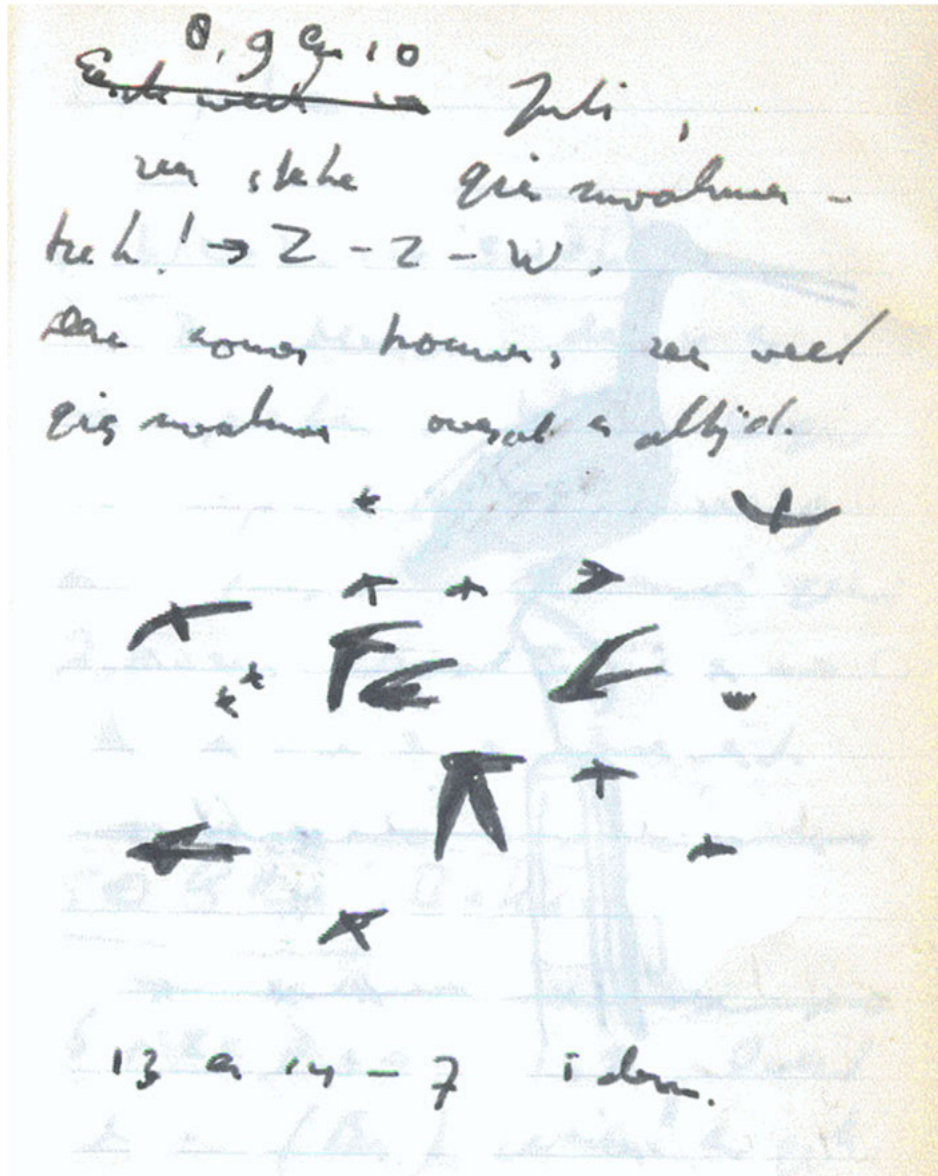 8, 9 en 10
Eerste week in Juli,
zeer sterke gierzwaluwen-
trek! → Z-Z-W.
Deze zomer trouwens, zeer veel
gierzwaluwen overal en altijd.
13 en 14-7 idem.